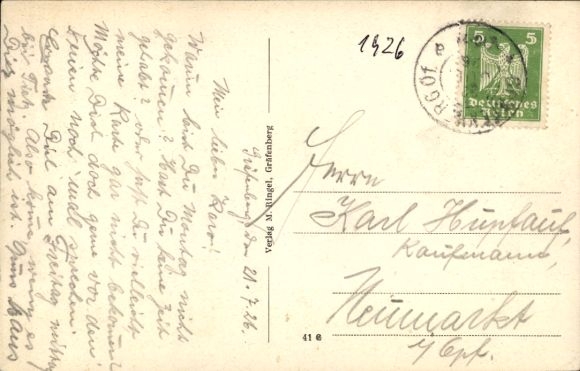 Gräfenberg, den 21.7.26.
Mein lieber Karo!
Warum bist Du Montag nicht
gekommen? Hast Du keine Zeit
gehabt? oder hast Du vielleicht
meine Karte gar nicht bekommen?
Möchte Dich doch gerne vor den
Ferien noch mal sprechen.
Erwarte Dich am Freitag mittag
bei Tieh. Also komme, wenn es
Dir möglich ist. Gruß Hans
Verlag M. Ringel, Gräfenberg
41
1926
5 5
Deutsches
Reich
Herrn
Karl Hupfauf,
Kaufmann,
Neumarkt
i/Opf.